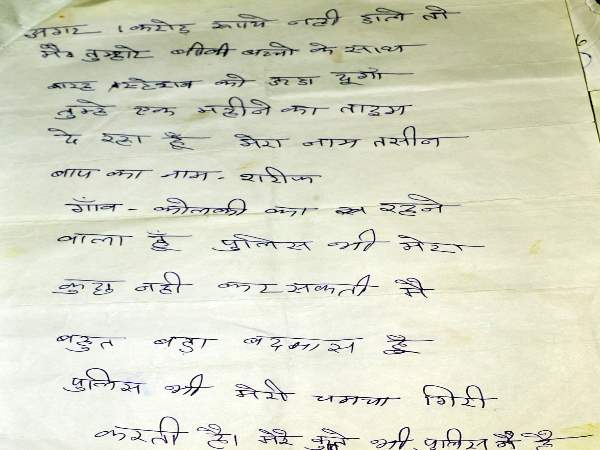 अगर 1 करोड़ रूपये नही डाले तो
मै तुम्हारे बीवी बच्चो के साथ
बारह स्टेशन को उडा दूगा
तुम्हे एक महीने का टाइम
दे रहा हूँ मेरा नाम तसीन
बाप का नाम - शरीफ
गाँव - कोलकी का रहने
वाला हूँ पुलिस भी मेरा
कुछ नही कर सकती मै
बहुत बड़ा बदमास हूँ
पुलिस भी मेरी चमचा गिरी
करती है। मेरे भी पुलिस मै है